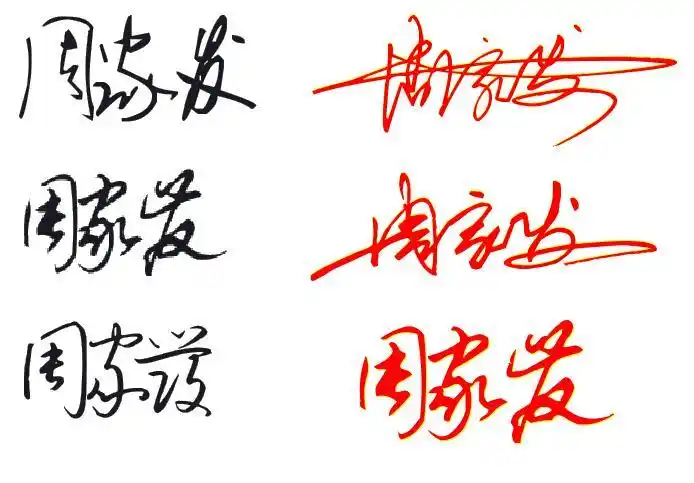 周家发 周家发
周家发 周家发
周家发 周家发